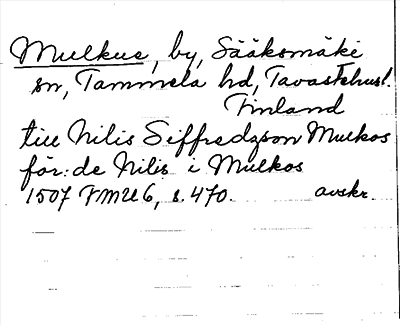 Mulkus, by, Sääksmäki
sn, Tammela hd, Tavastehusl.
Finland
till Nilis Siffredzson Mulkos
för: de Nilis i Mulkos
1507 FMU 6, s. 470. avskr.